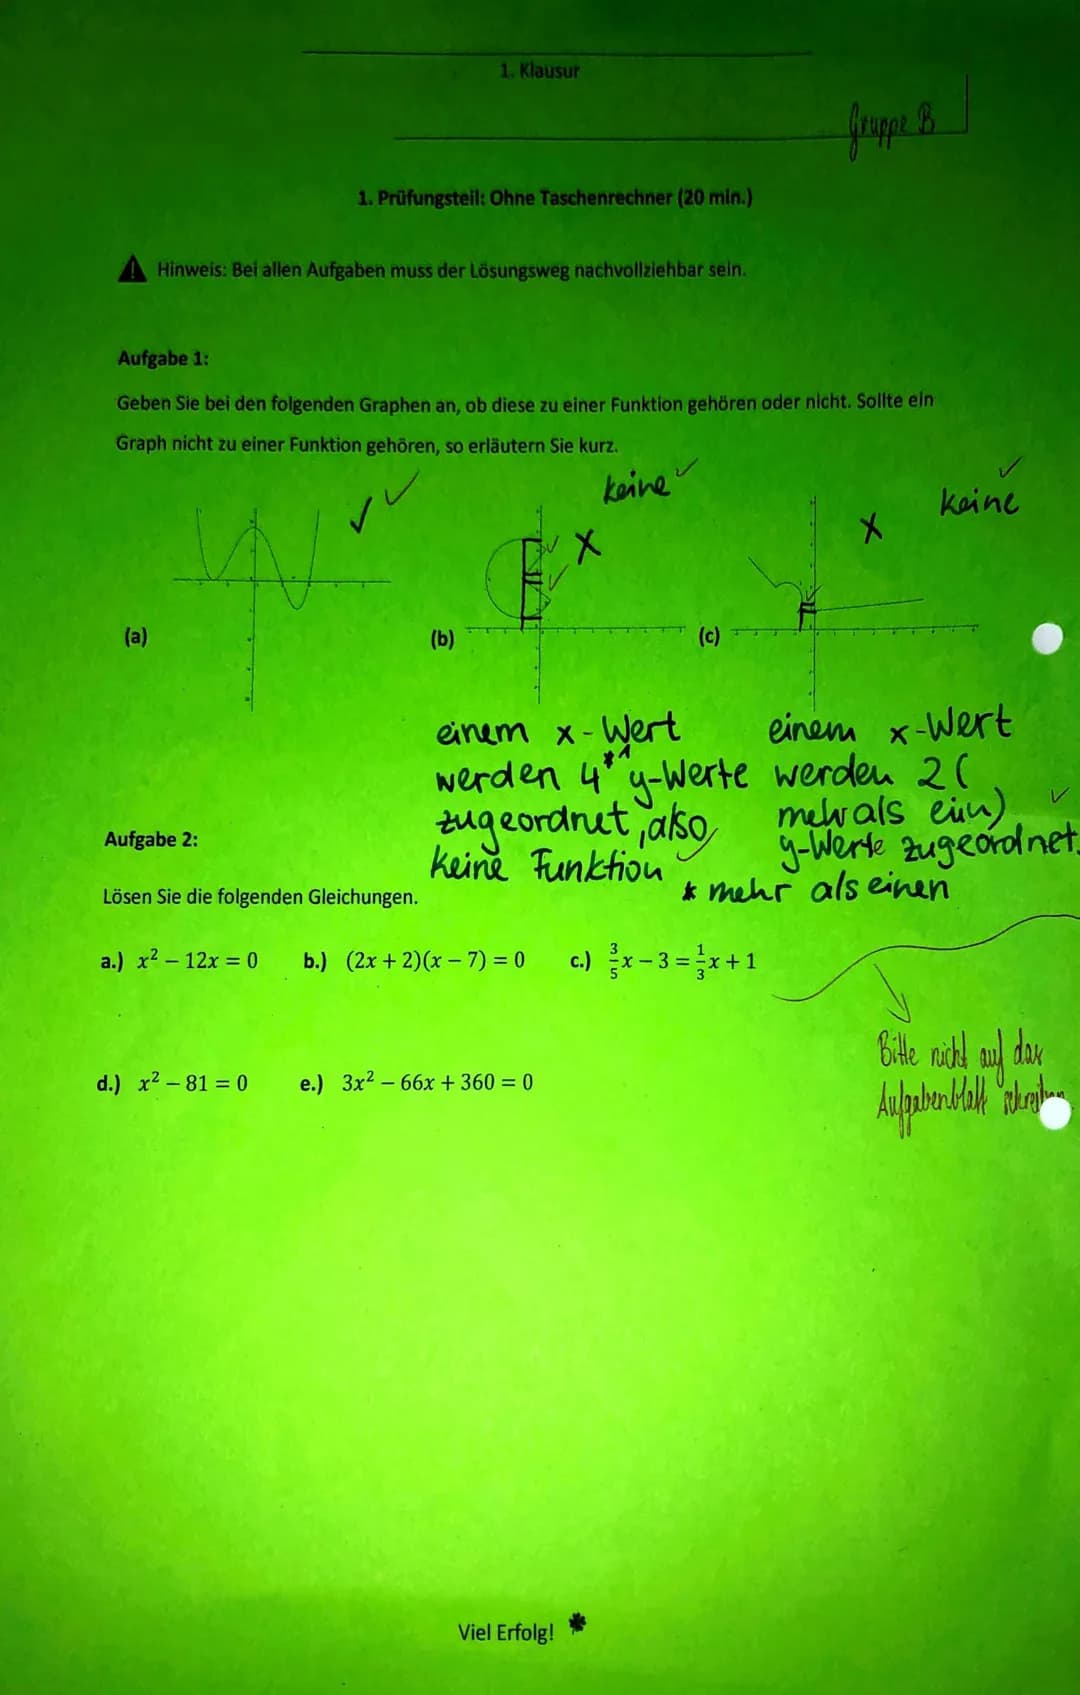 1. Klausur
Gruppe B
1. Prüfungsteil: Ohne Taschenrechner (20 min.)
Hinweis: Bei allen Aufgaben muss der Lösungsweg nachvollziehbar sein.
Aufgabe 1:
Geben Sie bei den folgenden Graphen an, ob diese zu einer Funktion gehören oder nicht. Sollte ein
Graph nicht zu einer Funktion gehören, so erläutern Sie kurz.
keine
keine
(a)
(b)
(c)
einem x-Wert
werden 4*¹ y-Werte
zugeordnet, also
keine Funktion
* mehr als einen
einem x-Wert
werden 2 (
mehr als ein)
y-Werte zugeordnet.
Aufgabe 2:
Lösen Sie die folgenden Gleichungen.
a.) x² − 12x = 0 b.) (2x + 2)(x − 7) = 0 c.) 3/5 x − 3 = 1/3 x + 1
d.) x² − 81 = 0 e.) 3x² − 66x + 360 = 0
Bitte nicht auf das
Aufgabenblatt schreiben
Viel Erfolg!